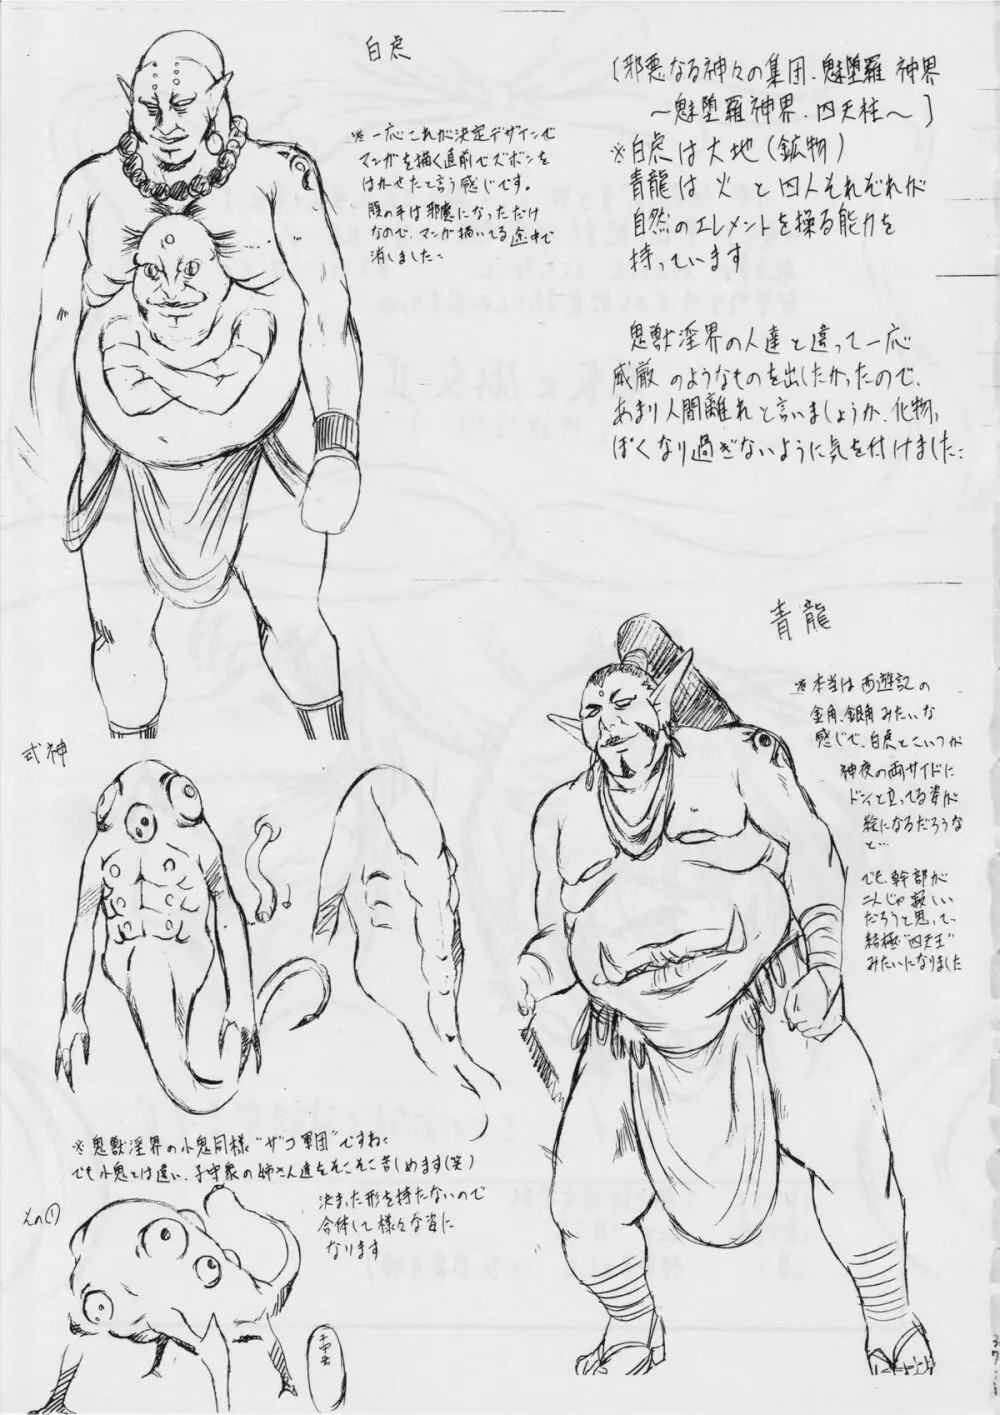 白虎
※一応これが決定デザインで
マンガを描く直前でズボンを
はかせたと言う感じです。
腹の手は邪魔になっただけ
なので、マンガ描いてる途中で
消しました…
〔邪悪なる神々の集団、魅堕羅 神界
～魅堕羅神界、四天柱～〕
※白虎は大地(鉱物)
青龍は火と四人それぞれが
自然のエレメントを操る能力を
持っています
鬼獣淫界の人達と違って一応
威厳のようなものを出したかったので、
あまり人間離れと言いましょうか、化物っ
ぽくなり過ぎないように気を付けました…
青龍
※本当は西遊記の
金角、銀角みたいな
感じで、白虎とこいつが
神夜の両サイドに
ドンと立ってる姿が
絵になるだろうな
と…
でも幹部が
二人じゃ寂しい
だろうと思って
結極“四天王”
みたいになりました
式神
※鬼獣淫界の小鬼同様“ザコ軍団”ですね…
でも小鬼とは違い、子守衆の姉さん達をそこそこ苦しめます(笑)
決まった形を持たないので
合体して様々な姿に
なります
その①